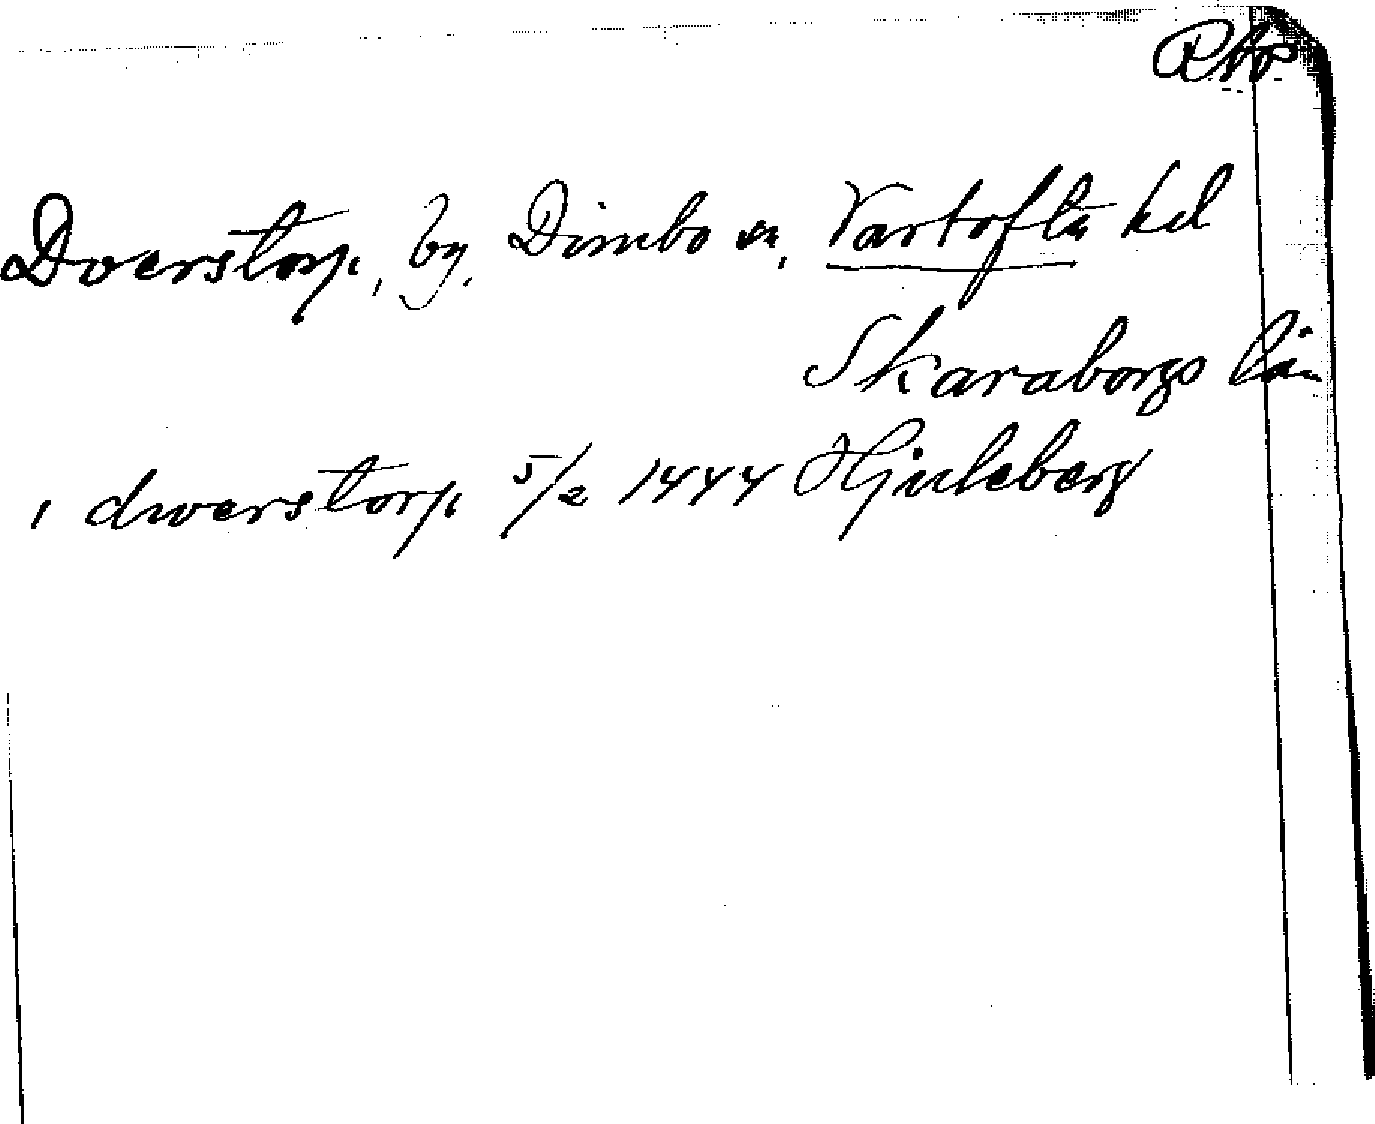 Dverstorp, by, Dimbo sn, Vartofta hd
Skaraborgs län
i dwerstorp 5/2 1444 Hjuleberg